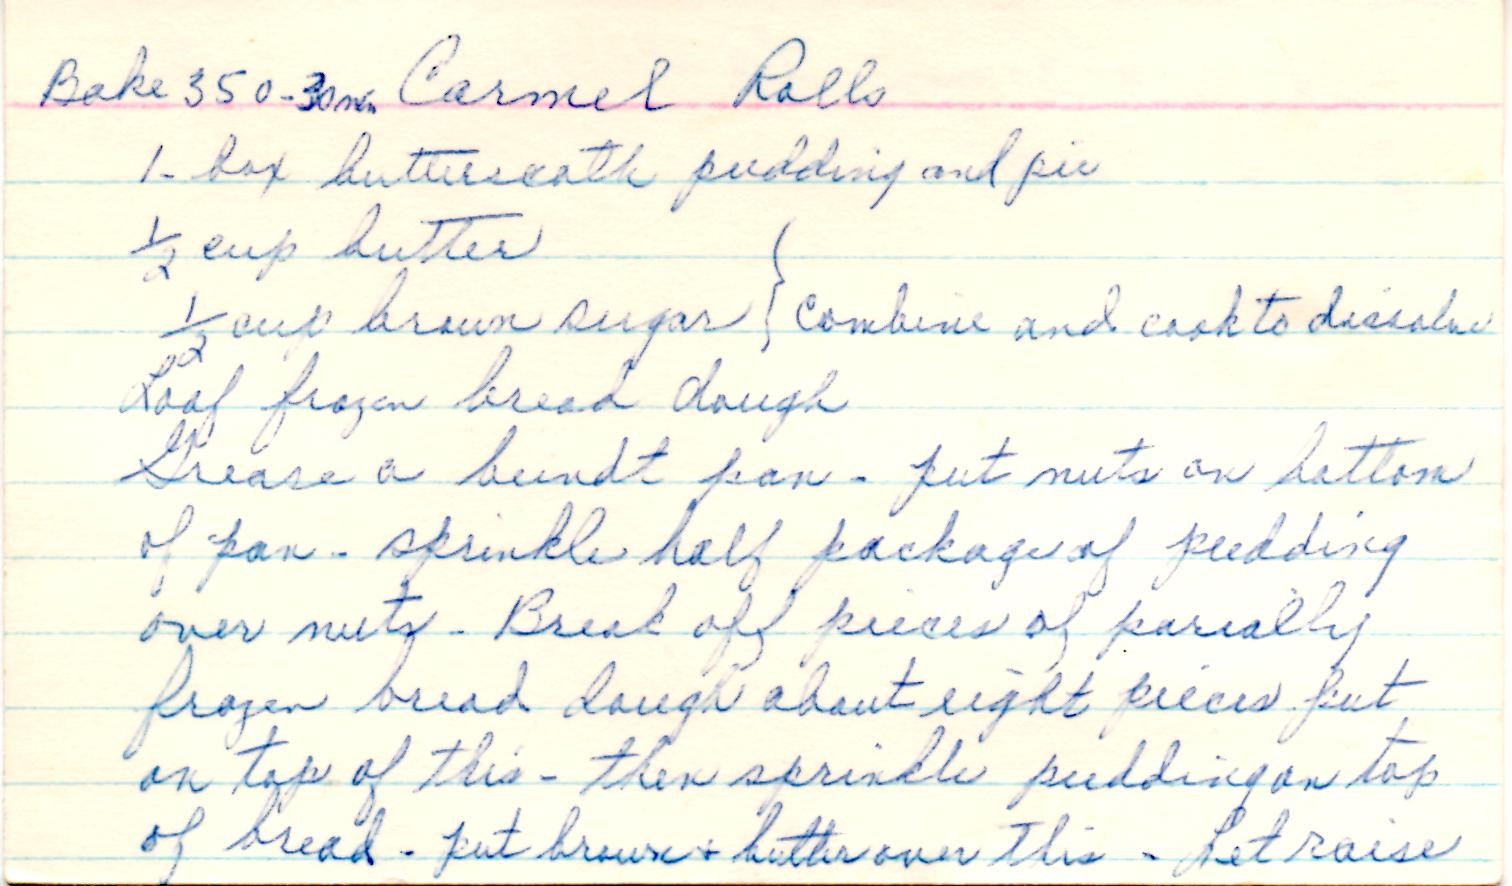 Bake 350-30min Carmel Rolls
1- box butterscoth pudding and pie
1/2 cup butter
1/2 cup brown sugar } Combine and cook to dissolve
Loaf frozen bread dough
Grease a bundt pan - put nuts on bottom
of pan - sprinkle half package of pudding
over nuts - Break off pieces of parially
frozen bread dough about eight pieces put
on top of this - then sprinkle pudding on top
of bread - put brown + butter over this - Let raise